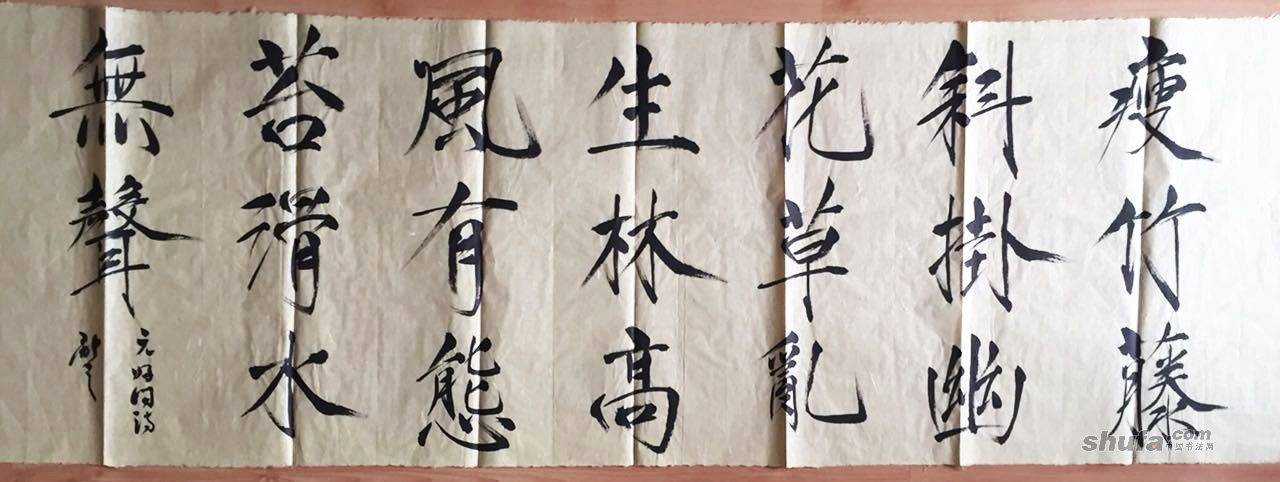 瘦竹藤
斜掛幽
花草亂
生林高
風有態
苔滑水
無聲
元好问詩
shufa.com
中国书法网